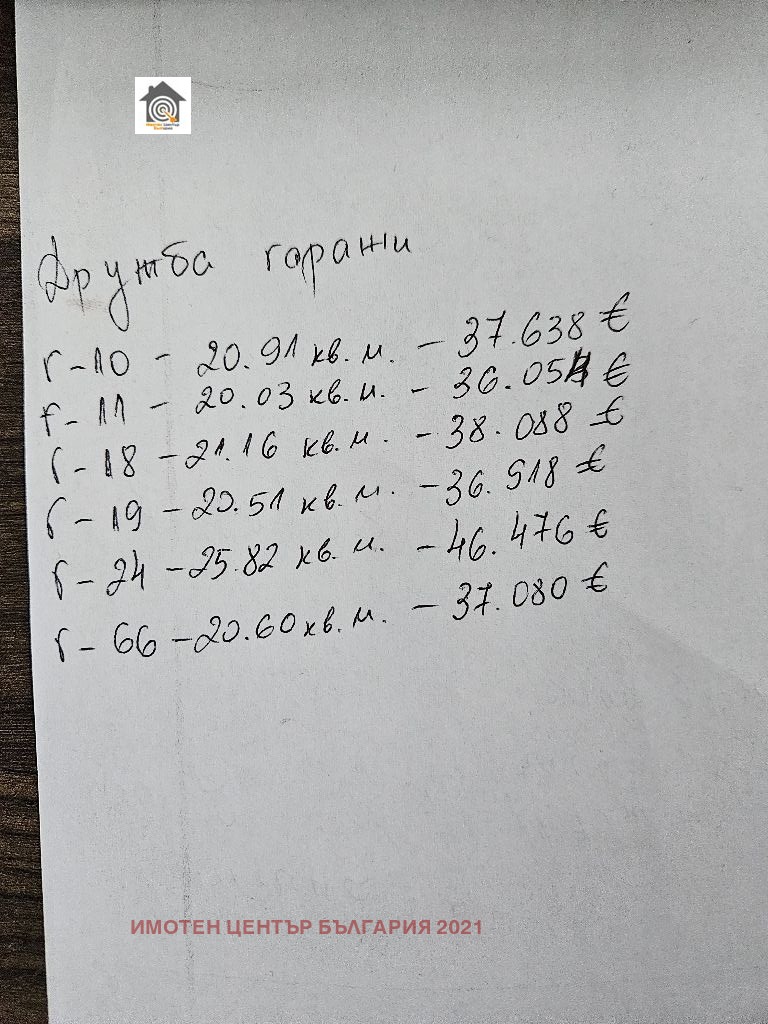 Дружба гаражи
г-10 - 20.91 кв.м. - 37.638 €
г-11 - 20.03 кв.м. - 36.054 €
г-18 - 21.16 кв.м. - 38.088 €
г-19 - 20.51 кв.м. - 36.918 €
г-24 - 25.82 кв.м. - 46.476 €
г-66 - 20.60 кв.м. - 37.080 €
ИМОТЕН ЦЕНТЪР БЪЛГАРИЯ 2021